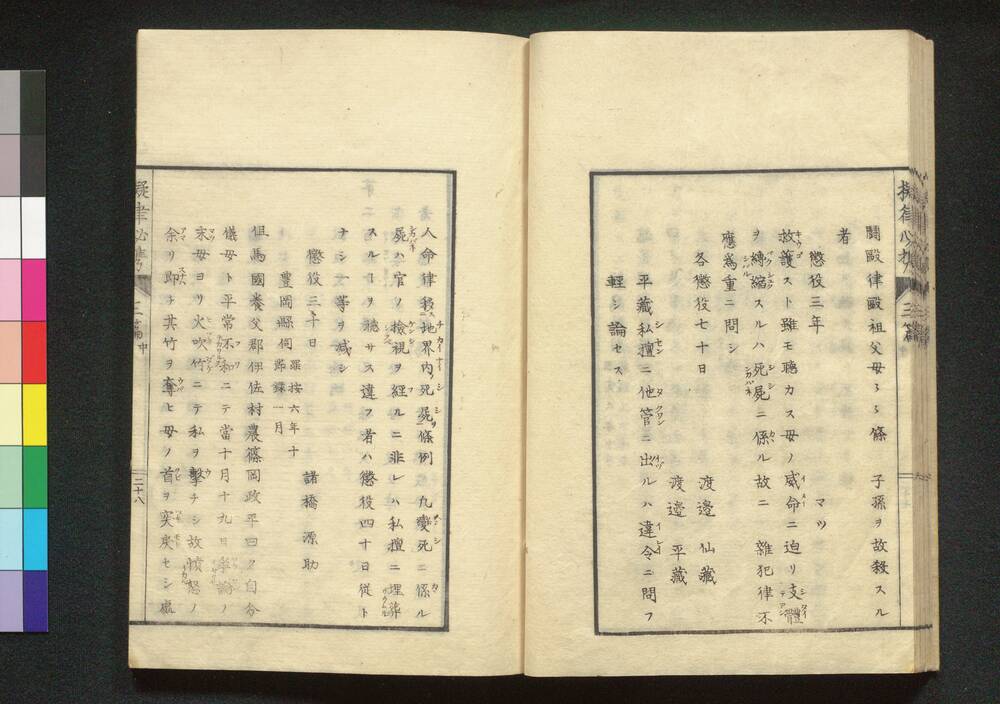 鬪毆律毆祖父母〻〻條　子孫ヲ故殺スル
者
懲役三年　マツ
故護スト雖モ聽カス母ノ威命ニ迫リ支體
ヲ縛縮スルハ死屍ニ係ル故ニ　雜犯律不
應爲重ニ問シ
各懲役七十日　渡邉　仙藏
渡邉　平藏
平藏私擅ニ他管ニ出ルハ違令ニ問フ
輕シ論セス
人命律移地界内死屍條例　凡變死ニ係ル
屍ハ官ノ撿視ヲ經ルニ非レハ私擅ニ埋葬
スルヿヲ聽サス違フ者ハ懲役四十日從ト
ナシ一等ヲ減シ
懲役三十日　諸橋　源助
豊岡縣伺　羅按六年十
一月
但馬國養父郡伊佐村農篠岡政平曰ク自分
儀母ト平常不和ニテ當十月十九日爭論ノ
末母ヨリ火吹竹ニテ私ヲ擊チシ故憤怒ノ
余リ即チ其竹ヲ奪ヒ母ノ首ヲ突戾セシ處
三篇中
二十八